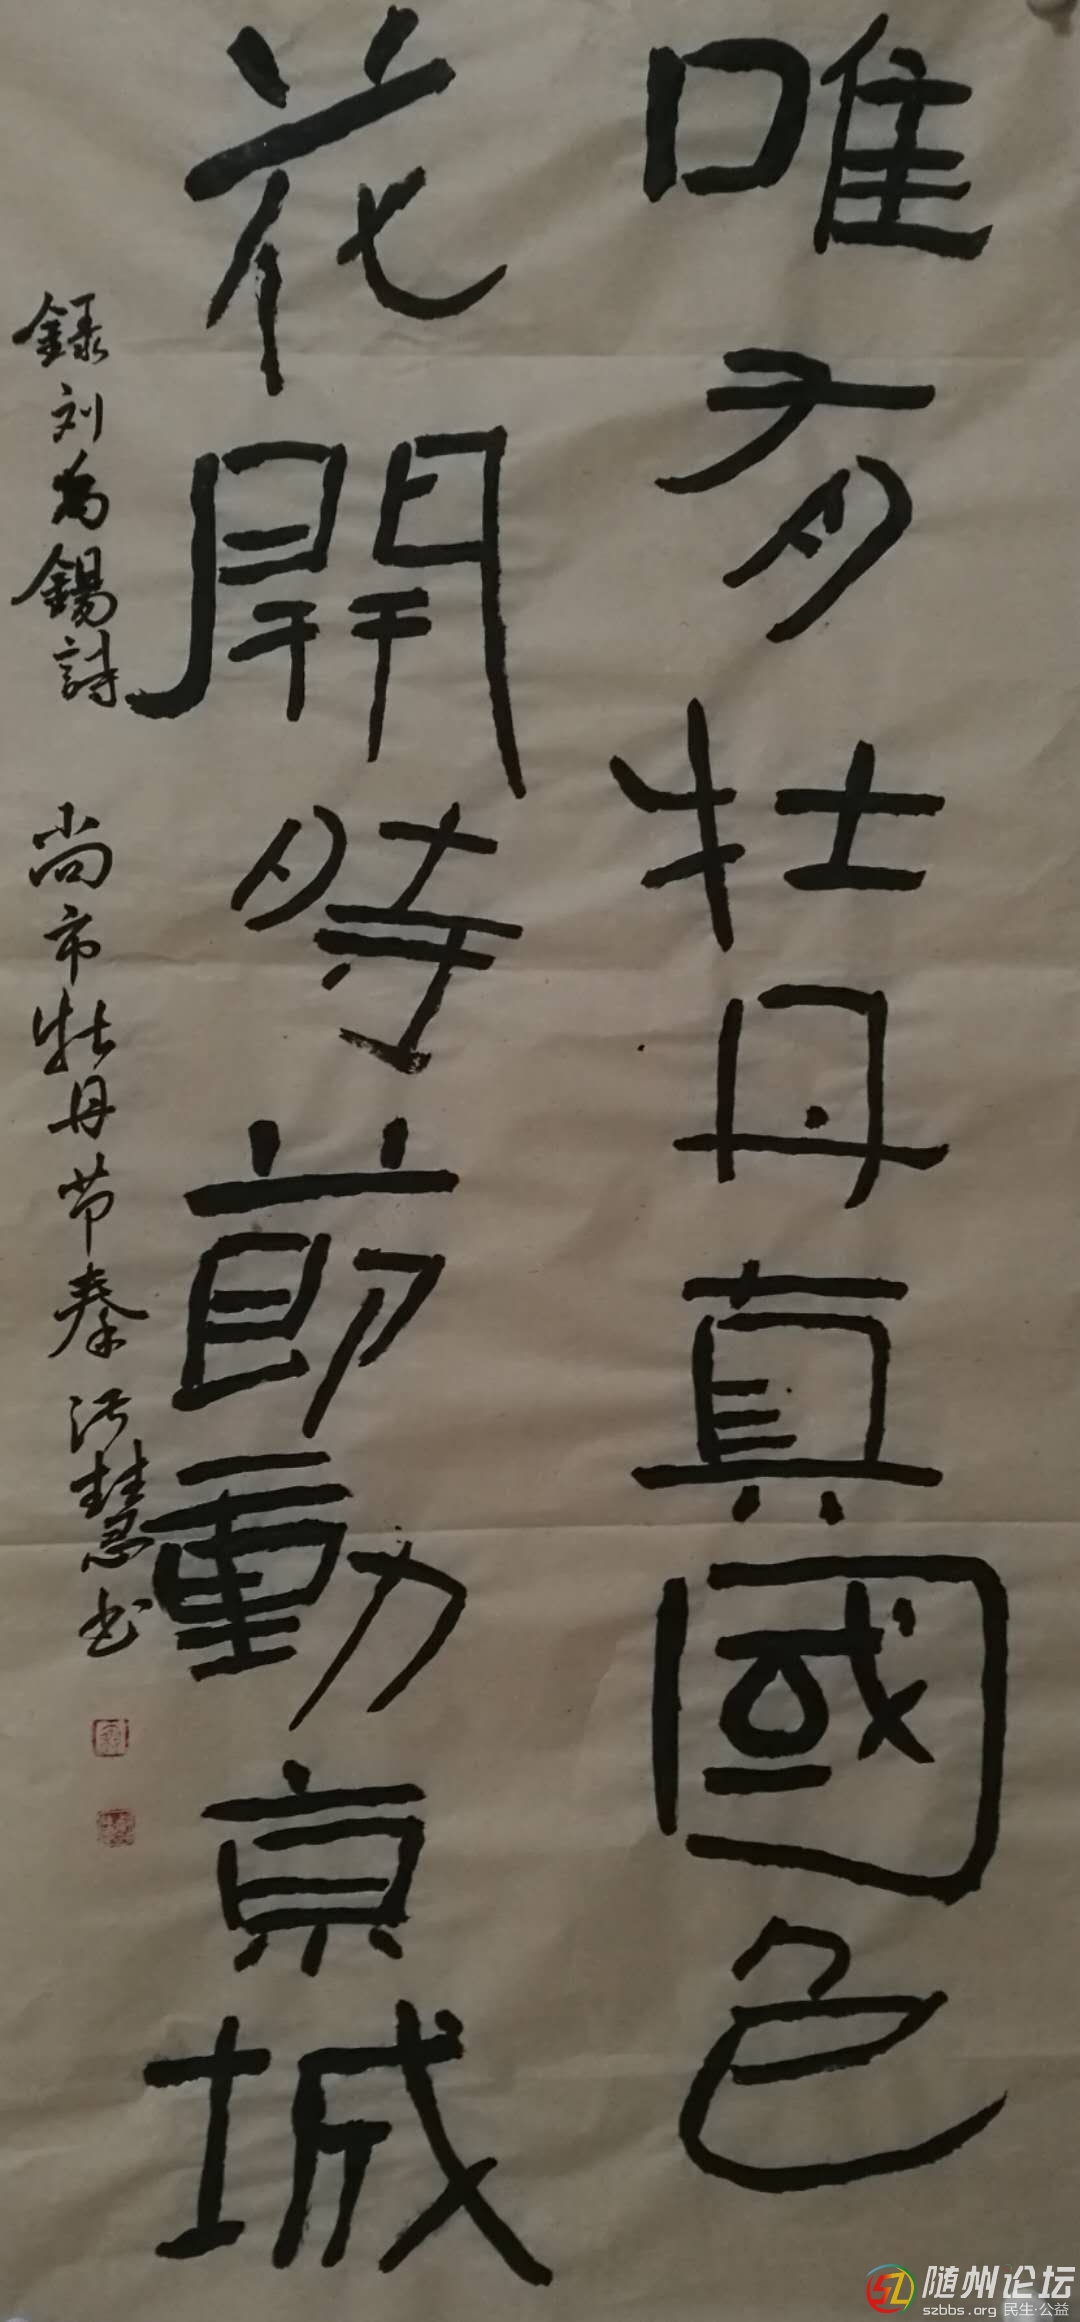 唯有牡丹真國色
花開時節動京城
録刘禹錫詩 尚市牡丹节秦 慧书
随州论坛
szbbs.org 民生·公益